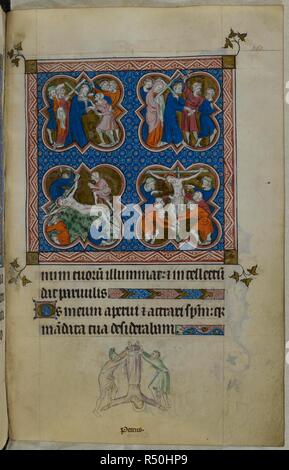 num tuorum illuminat: ⁊ intellectū
dat paruulis
Os meum aperui ⁊ attraxi spm̄: q̄
mandata tua desiderabam
Petrus.
alamy - R50HP9